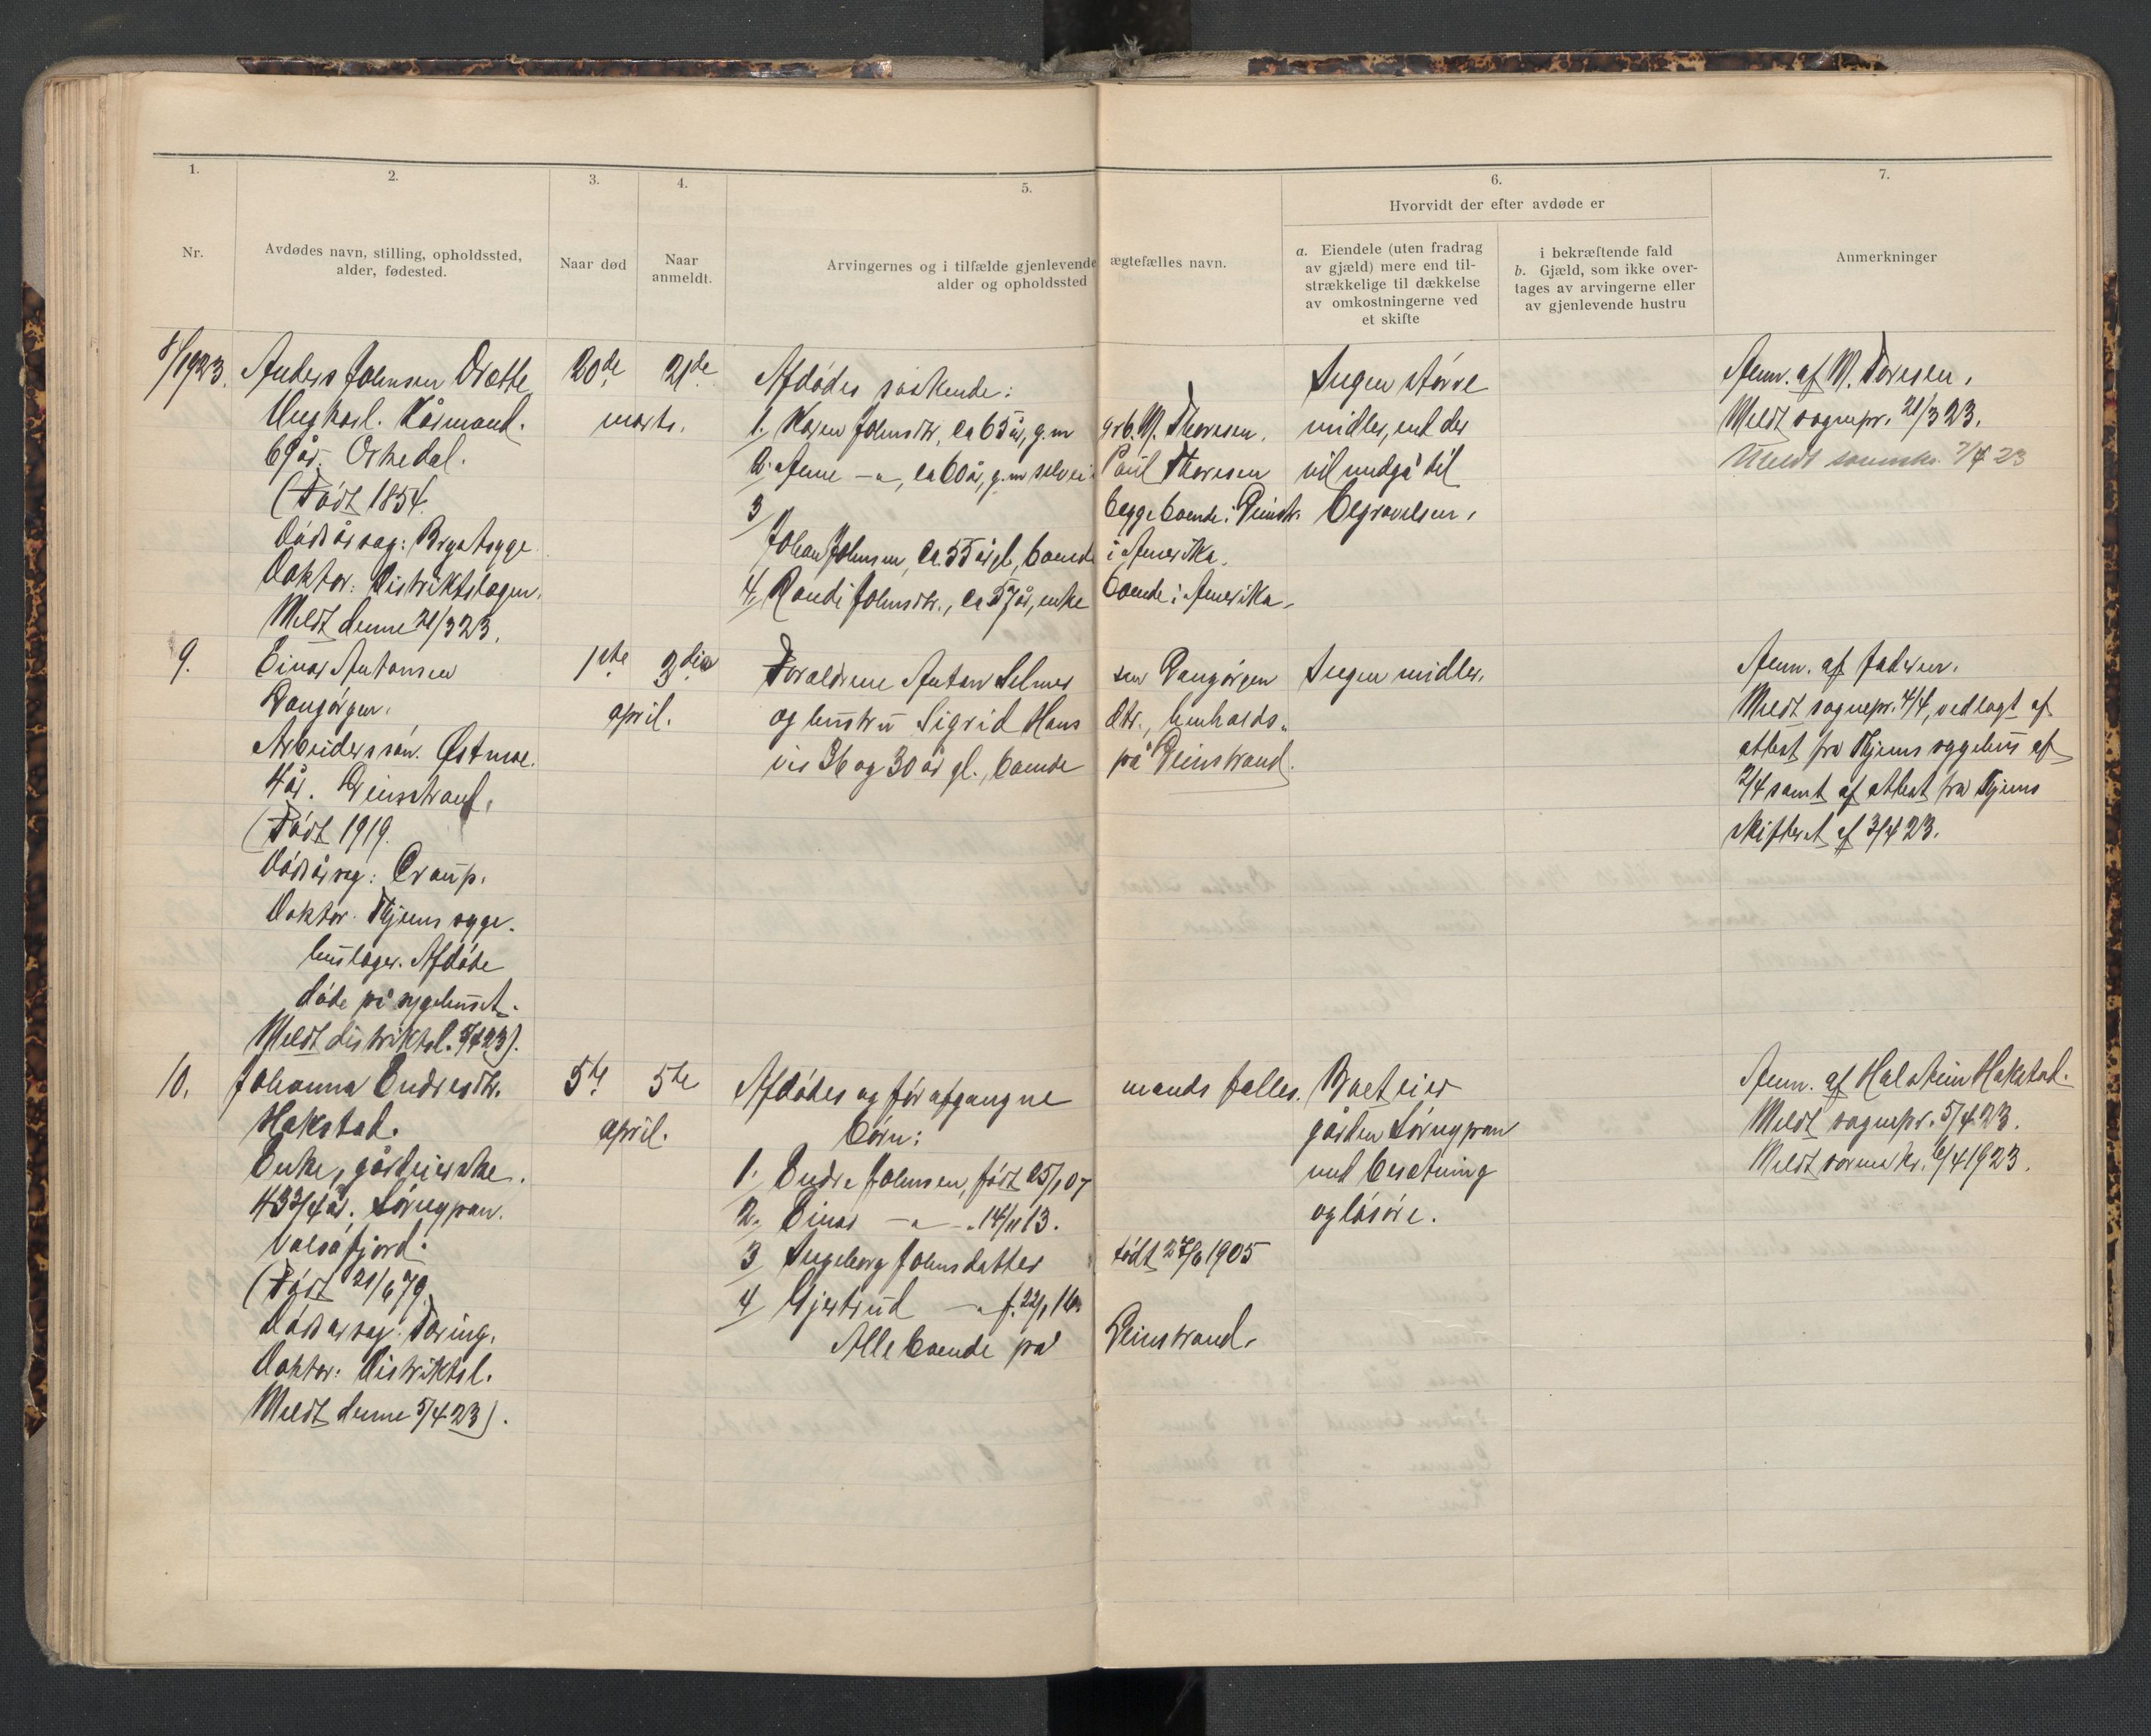 1.
2.
3.
4.
5.
6.
7.
Hvorvidt der efter avdøde er
Nr.
Avdødes navn, stilling, opholdssted,
alder, fødested.
Naar død
Naar
anmeldt.
Arvingernes og i tilfælde gjenlevende ægtefælles navn.
alder og opholdssted
a. Eiendele (uten fradrag
av gjæld) mere end til-
strækkelige til dækkelse
av omkostningerne ved
et skifte
i bekræftende fald
b. Gjæld, som ikke over-
tages av arvingerne eller
av gjenlevende hustru
Anmerkninger
8/1923.
Anders Johnsen
Ungkarl. Kårmand.
69 år. Orkedal.
(Født 1854.
Dødsårsag: Brystsyge.
Doktor: Distriktslægen.
Meldt denne 21/3 23.
20de
marts.
21de
Afdødes søskende:
1. Karen Johnsdtr, ca 65 år, g.m. grb. M. Thoresen.
2. Anne —"—, ca 60 år, g.m. selvei. Paul Thoresen
begge boende i Leinstr.
3 Johan Johnsen, ca. 55 år gl, boende i Amerika.
4, Randi Johnsdtr., ca 57 år, enke boende i Amerika.
Ingen større
midler, end der
vil medgå til
begravelsen.
Anm. af M. Toresen.
Meldt sognepr. 21/3 23.
Meldt 7/4 23
9.
Einar Antonsen
Langørgen.
Arbeiderssøn. Østmoe.
4 år. Leinstrand.
(Født 1919.
Dødsårsag: Croup.
Doktor: Thjems syge-
huslæger. Afdøde
døde på sygehuset.
Meldt distriktsl. 4/4 23).
1ste
april.
3die
Forældrene Anton Selmer sen Langørgen
og hustru Sigrid Hans dtr., henholds-
vis 36 og 30 år gl., boende på Leinstrand.
Ingen midler.
Anm. af faderen.
Meldt sognepr. 4/4, vedlagt af
attest fra Thjems sygehus af
2/4 samt af attest fra Thjems
skifteret af 3/4 23.
10.
Johanna Endresdtr.
Hakstad.
Enke, gårdeierske.
43 3/4 år. Sørnypan.
Valsøfjord.
(Født 21/6 79.
Dødsårsag: Tæring.
Doktor: Distriktsl.
Meldt denne 5/4 23).
5te
april.
5te
Afdødes og før afgangne mands fælles
børn:
1. Endre Johnsen, født 25/1 07
2. Einar —"— " 14/11 13.
3 Ingeborg Johnsdatter født 27/6 1905
4 Gjertrud —"— f. 22/1 16.
Alle boende på Leinstrand.
Boet eier
gården Sørnypan
med besætning
og løsøre.
Anm. af Halstein Hakstad.
Meldt sognepr. 5/4 23.
Meldt sorenskr. 6/4 1923.